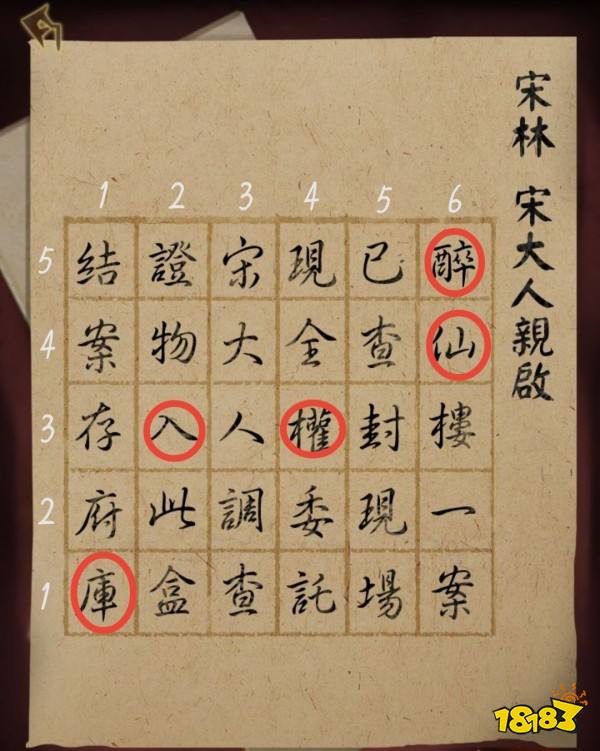 宋林 宋大人親啟
1 2 3 4 5 6
5 結 證 宋 現 已 醉
4 案 物 大 全 查 仙
3 存 入 人 權 封 樓
2 府 此 調 委 現 一
1 庫 盒 查 託 場 案
18183